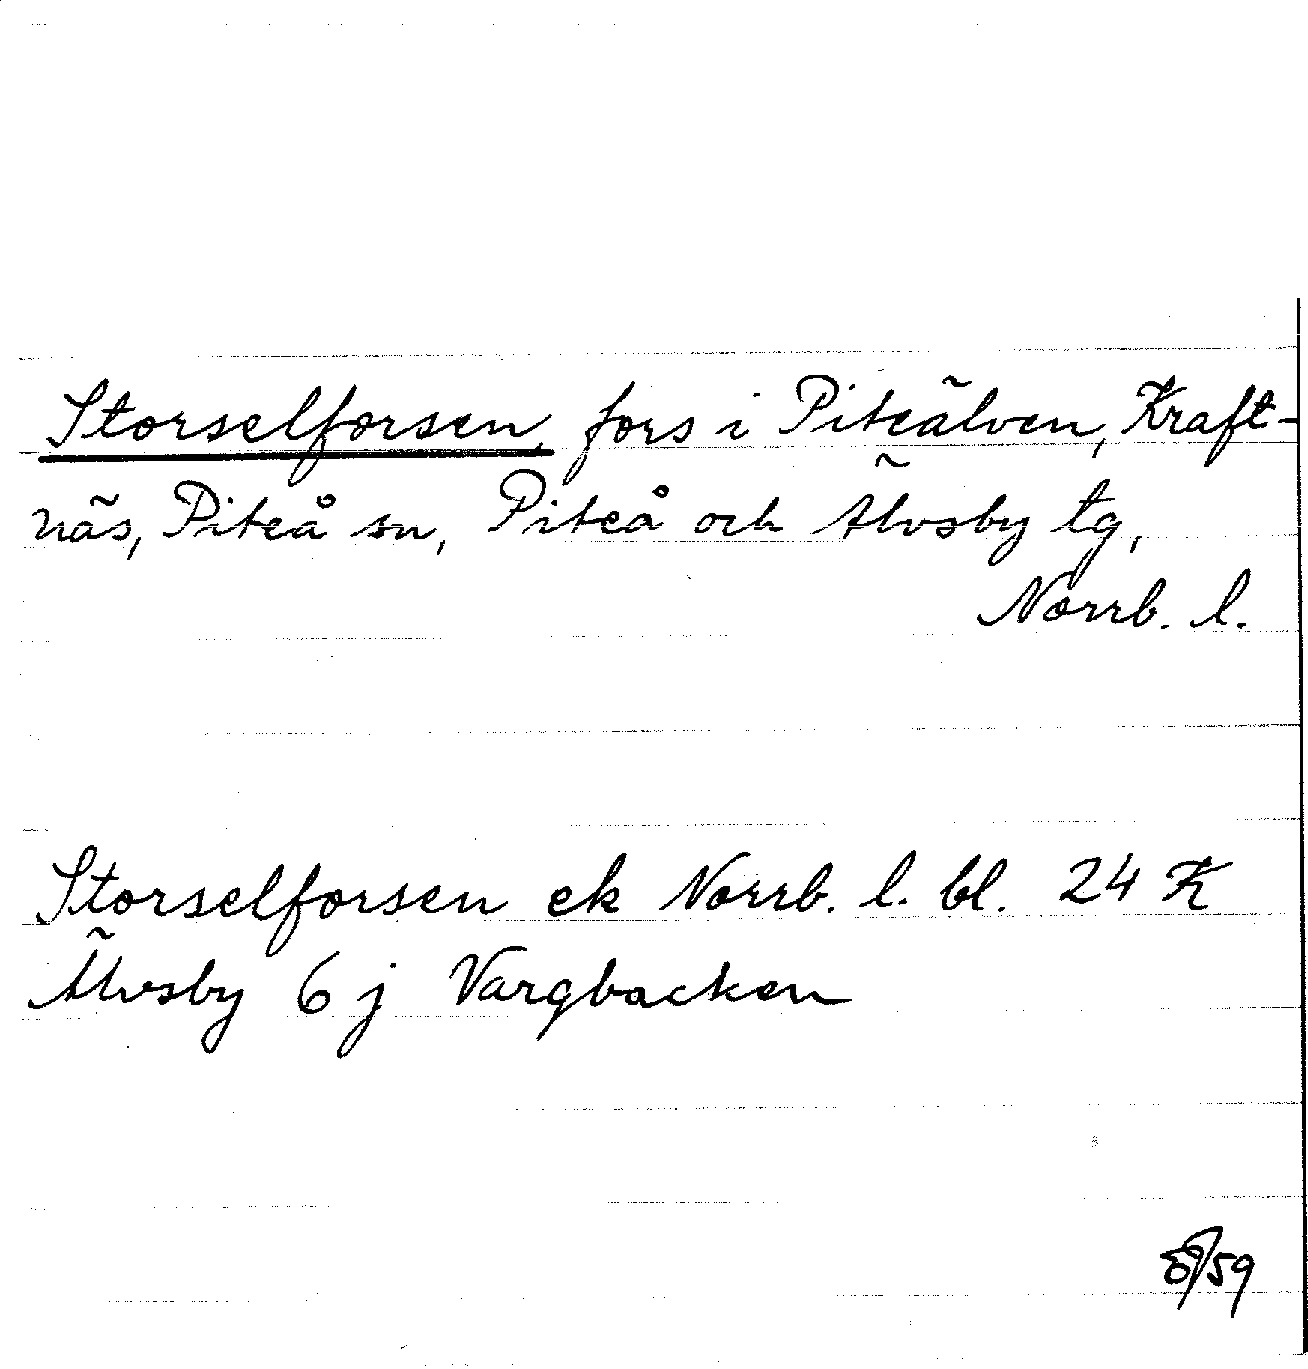 Storselforsen, fors i Piteälven, Kraft-
näs, Piteå sn, Piteå och Älvsby tg,
Norrb. l.
Storselforsen ek Norrb. l. bl. 24 K
Älvsby 6 j Vargbacken